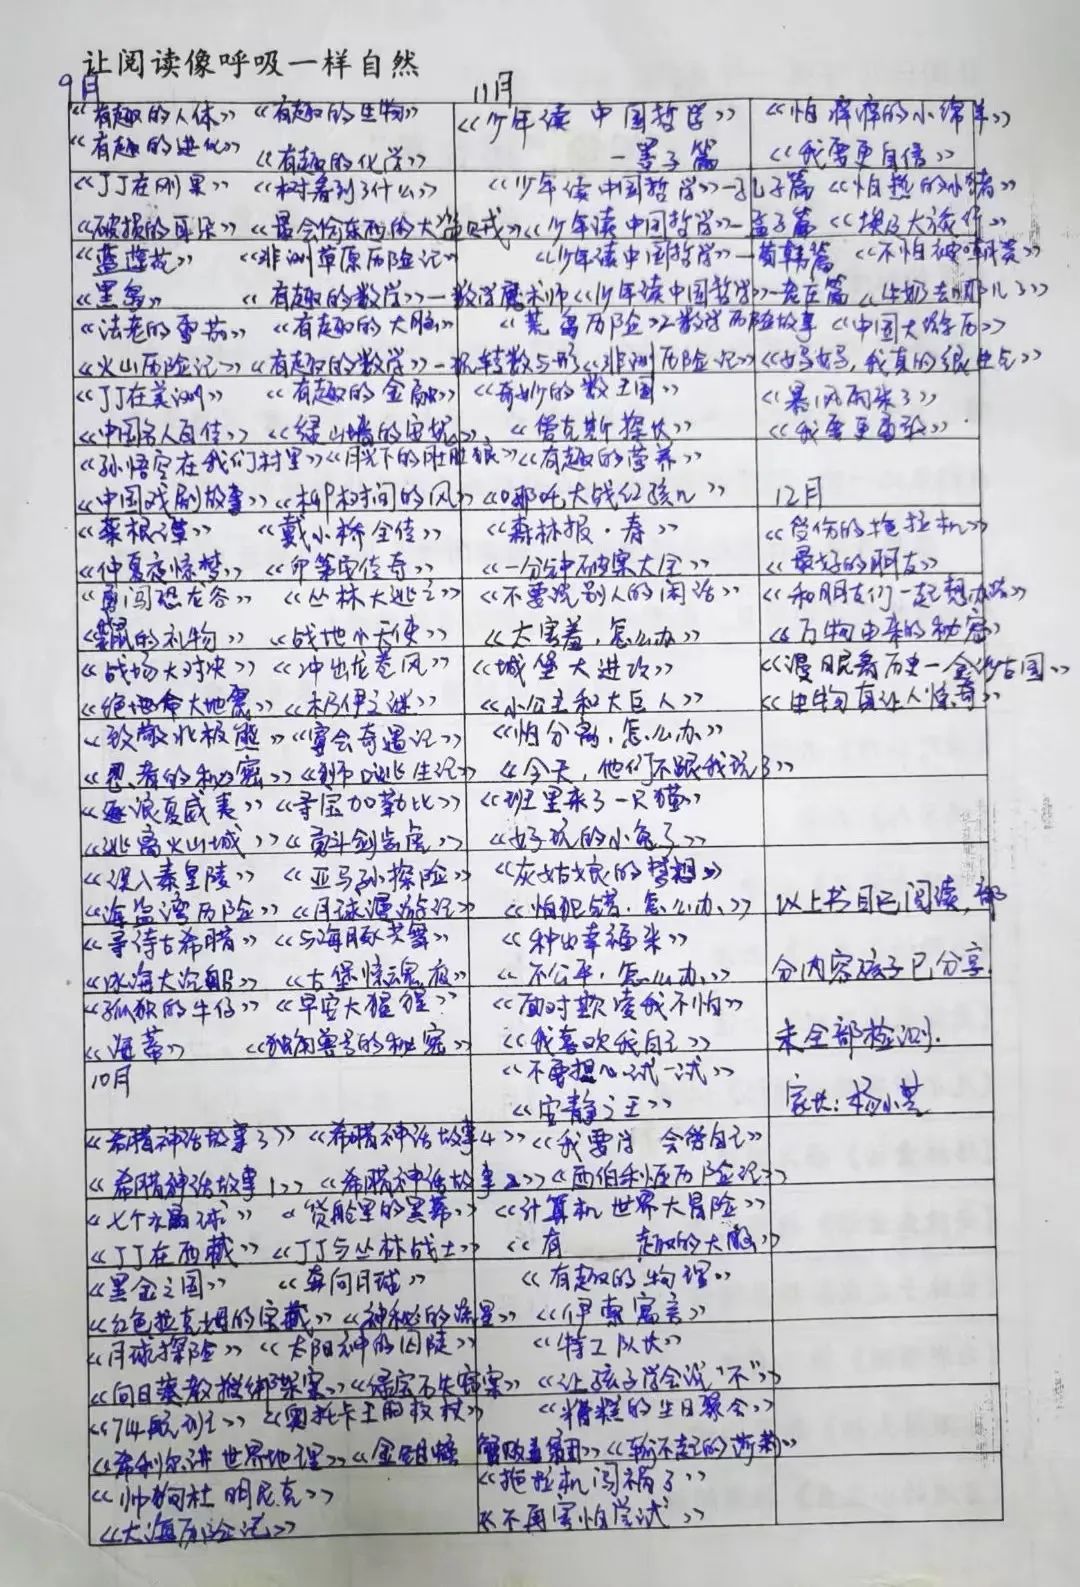 让阅读像呼吸一样自然
9月
《有趣的人体》 《有趣的生物》
《有趣的进化》 《有趣的化学》
《丁丁在刚果》 《树看到了什么》
《破损的耳朵》 《最会偷东西的大盗贼》
《蓝莲花》 《非洲草原历险记》
《黑岛》 《有趣的数学》—数学魔术师
《法老的雪茄》 《有趣的大脑》
《火山历险记》 《有趣的数学》—玩转数与形
《丁丁在美洲》 《有趣的金融》
《中国名人百传》 《绿山墙的安妮》
《孙悟空在我们村里》 《月光下的肚肚狼》
《中国戏剧故事》 《柳树间的风》
《菜根谭》 《戴小桥全传》
《仲夏夜惊梦》 《印第安传奇》
《勇闯恐龙谷》 《丛林大逃亡》
《鼹鼠的礼物》 《战地小天使》
《战场大对决》 《冲出龙卷风》
《绝命大地震》 《木乃伊之谜》
《致敬北极熊》 《宴会奇遇记》
《忍者的秘密》 《狮口逃生记》
《逐浪夏威夷》 《寻宝加勒比》
《逃离火山城》 《勇斗剑齿虎》
《误入秦皇陵》 《亚马孙探险》
《海盗湾历险》 《月球漫游记》
《等待古希腊》 《与海豚共舞》
《冰海大沉船》 《古堡惊魂夜》
《孤独的牛仔》 《早安大猩猩》
《海蒂》 《独角兽号的秘密》
10月
《希腊神话故事3》 《希腊神话故事4》
《希腊神话故事1》 《希腊神话故事2》
《七个水晶球》 《货舱里的黑幕》
《丁丁在西藏》 《丁丁与丛林战士》
《黑金之国》 《奔向月球》
《红色拉克姆的宝藏》 《神秘的流星》
《月球探险》 《太阳神的囚徒》
《向日葵教授绑架案》 《绿宝石失窃案》
《714航班》 《奥托卡王的权杖》
《希利尔讲世界地理》 《金钳螃蟹贩毒集团》
《帅狗杜明尼克》
《大海历险记》
11月
《少年读中国哲学》
—墨子篇
《少年读中国哲学》—孔子篇
《少年读中国哲学》—孟子篇
《少年读中国哲学》—荀韩篇
《少年读中国哲学》—老庄篇
《荒岛历险》2数学历险故事
《非洲历险记》
《奇妙的数王国》
《鲁克斯探长》
《有趣的营养》
《哪吒大战红孩儿》
《森林报·春》
《一分钟破案大全》
《不要说别人的闲话》
《太害羞，怎么办》
《城堡大进攻》
《小公主和大巨人》
《怕分离，怎么办》
《今天，他们不跟我玩了》
《班里来了一只猫》
《好玩的小兔子》
《灰姑娘的梦想》
《怕犯错，怎么办》
《种出幸福来》
《不公平，怎么办》
《面对欺凌我不怕》
《我喜欢我自己》
《不要担心试一试》
《安静之王》
《我要学会管自己》
《西伯利亚历险记》
《计算机世界大冒险》
《有趣的大脑》
《有趣的物理》
《伊索寓言》
《特工队长》
《让孩子学会说“不”》
《糟糕的生日聚会》
《输不起的莎莉》
《拖拉机闯祸了》
《不再害怕尝试》
《怕痒痒的小绵羊》
《我要更自信》
《怕热的小猪》
《埃及大旅行》
《不怕被嘲笑》
《牛奶去哪儿了》
《中国大游历》
《妈妈，我真的很生气》
《暴风雨来了》
《我要更勇敢》
12月
《受伤的拖拉机》
《最好的朋友》
《和朋友们一起想办法》
《万物由来的秘密》
《漫眼看历史—金沙古国》
《生物真让人惊奇》
以上书目已阅读，部
分内容孩子已分享
未全部检测.
家长：杨小芝